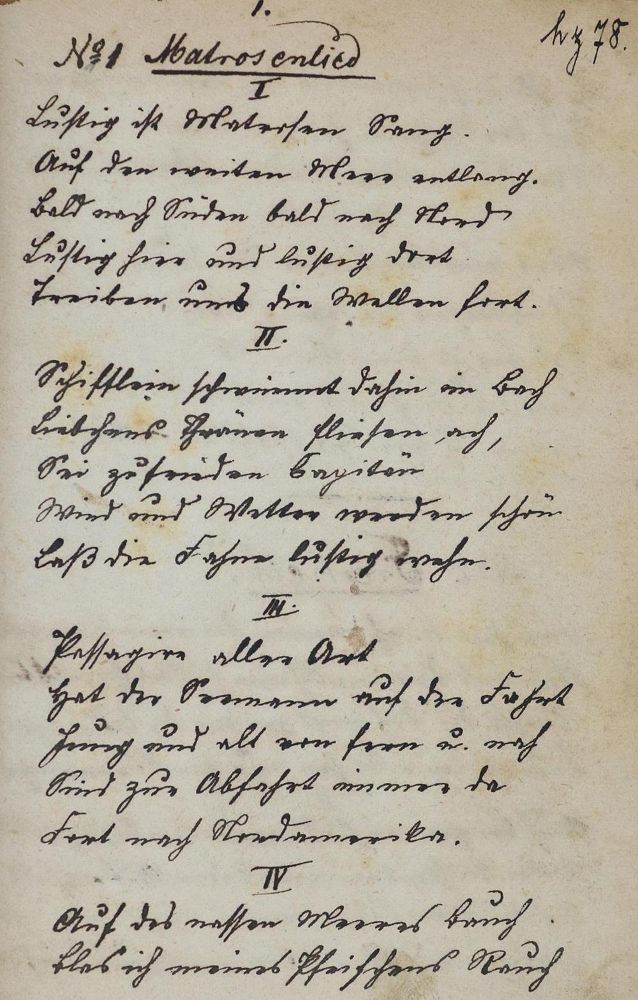 1.
hz 78.
No 1 Matrosenlied
I
Lustig ist Matorsen Sang.
Auf den weiten Meer entlang.
Bald nach Süden bald nach Nord
Lustig hier und lustig dort
Treiben uns die Wellen fort.
II.
Schifflein schwimmt dahin im Bach
Liebchens Thränen fliesen ach,
Sei zufrieden Capitän
Wind und Wetter werden schön
Laß die Fahne lustig wehn.
III.
Passagire aller Art
Hat der Seemann auf der Fahrt
Jung und alt von fern u. nah
Sind zur Abfahrt immer da
Fort nach Nordamerika.
IV
Auf des nassen Meeres Bauch
Blas ich meines Pfeifchens Rauch